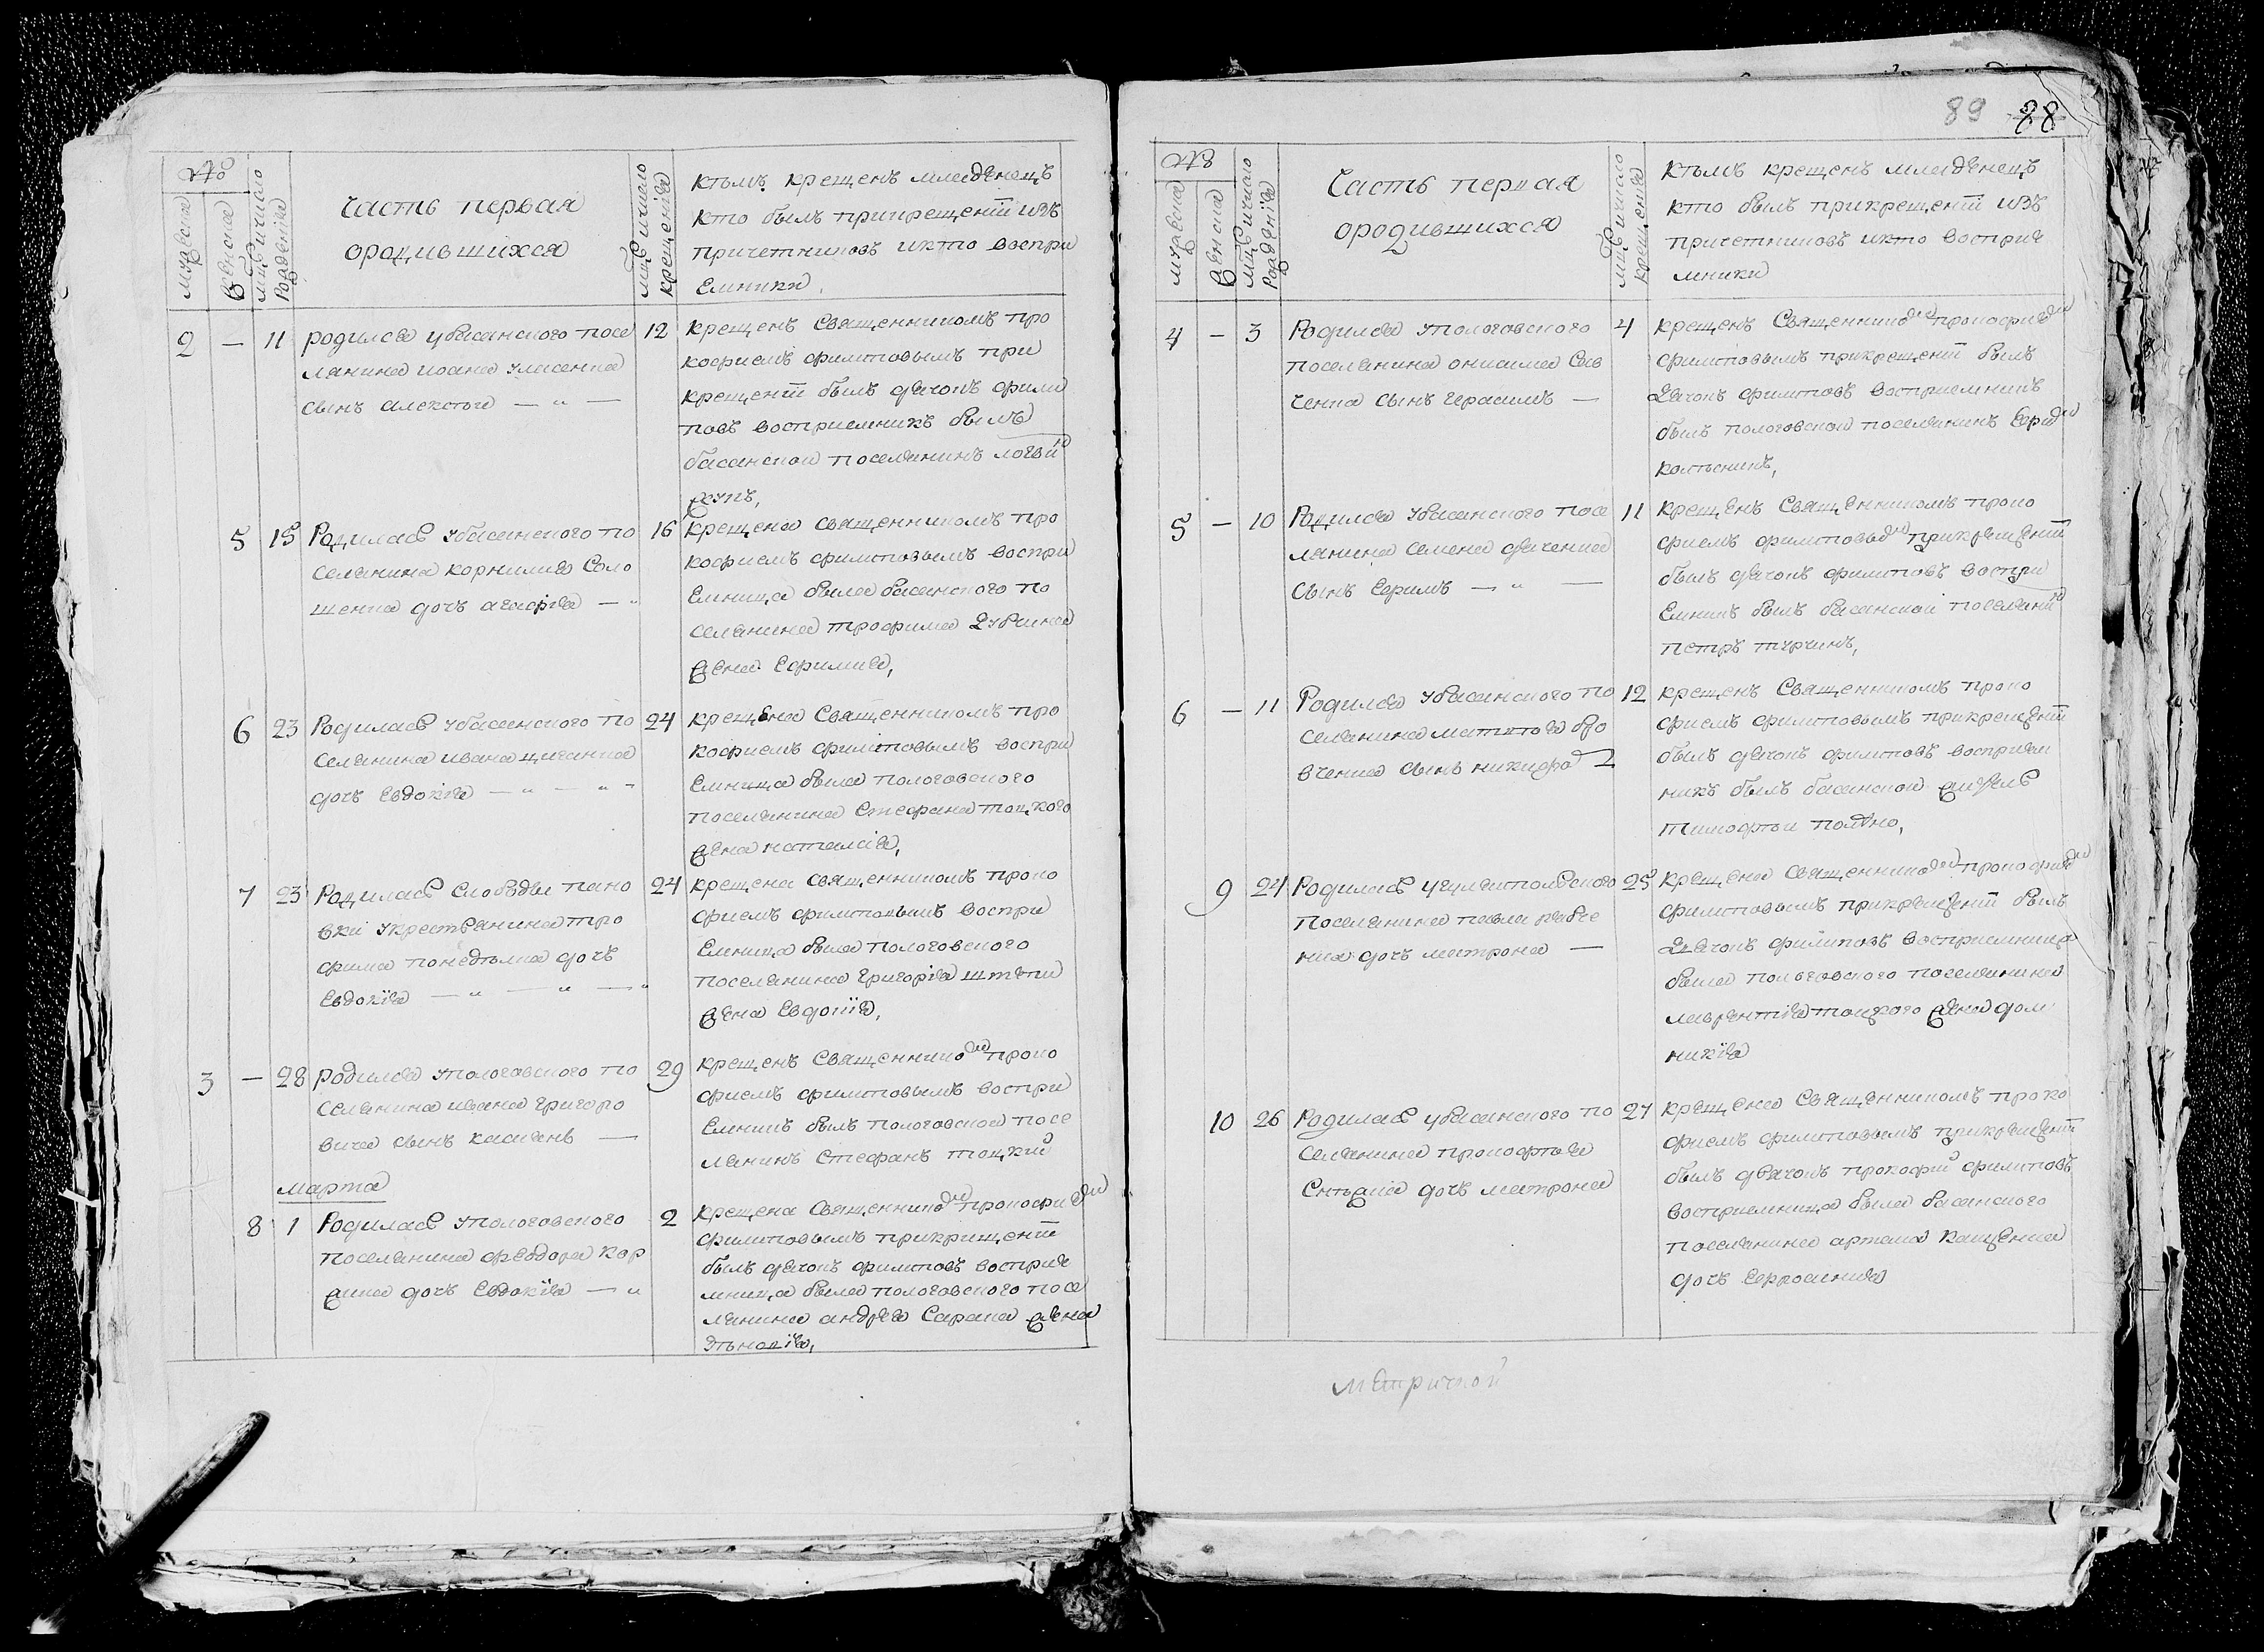 №
мужеска
женска
мцъ ичисло
рождения
Часть первая
ородившихся
мцъ ичисло
крещения
Кѣмъ крещенъ младенецъ
кто былъ прикрещенїи изъ
причетниковъ икто воспри
емники.
2 — 11 родился убасанского посе
лянина иоана
сынъ алексѣй — „ —
12 крещенъ Священникомъ про
кофиемъ филиповымъ при
крещенїи былъ дячокъ фили
повъ восприемникъ былъ
басанской поселянинъ
5 15 Родилась убасанского по
селянина корнилия Соло
шенка дочъ агафия — „
16 крещена священникомъ про
кофиемъ филиповымъ воспри
емница была басанского по
селянина трофима
жена Ефимия,
6 23 Родилась убасанского по
селянина ивана циганка
дочъ Евдокїя — „ — „ –
24 крещена Священникомъ про
кофиемъ филиповымъ воспри
емница была пологовского
поселянина Стефана тоцкого
жена наталия,
7 23 Родилась слободы пано
вки укрестьянина тро
фима понедѣлка дочъ
Евдокїя — „ — „ — „
24 крещена священникомъ проко
фиемъ филиповымъ воспри
емница была пологовского
поселянина григорїя
жена Евдокїя,
3 — 28 родился упологовского по
селянина ивана григоро
вича сынъ касиянъ —
29 крещенъ Священникомъ проко
фиемъ филиповымъ воспри
емникъ былъ пологовской посе
лянинъ Стефанъ тоцкий
марта
8 1 Родилась упологовского
поселянина феодора кор
жика дочъ Евдокїя — „
2 крещена Священникомъ прокофием
филиповымъ прикрищенїи
былъ дячокъ филиповъ восприе
мница была пологовского посе
лянина андрея Сарана жена
89 88
№
мужеска
женска
мцъ ичисло
рождения
Часть первая
ородившихся
мцъ ичисло
крещения
Кѣмъ крещенъ младенецъ
кто былъ прикрещенїи изъ
причетниковъ икто восприе
мники
4 — 3 Родился упологовского
поселянина онисима Сав
ченка сынъ герасимъ —
4 крещенъ Священникомъ прокофием
филиповымъ прикрещенїи былъ
дячокъ филиповъ восприемникъ
былъ пологовской поселянинъ
колѣсникъ,
5 — 10 Родился убасанского посе
лянина семена дяченка
сынъ Ефимъ — „ —
11 крещенъ Священникомъ проко
фиемъ филиповым прикрещенїи
былъ дячокъ филиповъ воспри
емникъ былъ басанской поселянинъ
петръ турчинъ,
6 — 11 Родился убасанского по
селянина матвѣя бро
вченка сынъ никифоръ
12 крещенъ Священникомъ проко
фиемъ филиповымъ прикрещенїи
былъ дячокъ филиповъ восприем
никъ былъ басанской житель
тимофѣй
9 24 Родилась угуляйпольского
поселянина павла
дочъ матрона —
25 крещена священником прокофием
филиповымъ прикрещенїи былъ
дячокъ филиповъ восприемница
была пологовского поселянина
лаврентїя тоцкого жена дом
никїя
10 26 Родилась убасанского по
селянина прокофья
Снѣжка дочъ матрона
27 крещена Священникомъ проко
фиемъ филиповымъ прикрещенїи
былъ дячокъ прокофий филиповъ
восприемница была басанского
поселянина артема
дочъ Ефросиния
метрической